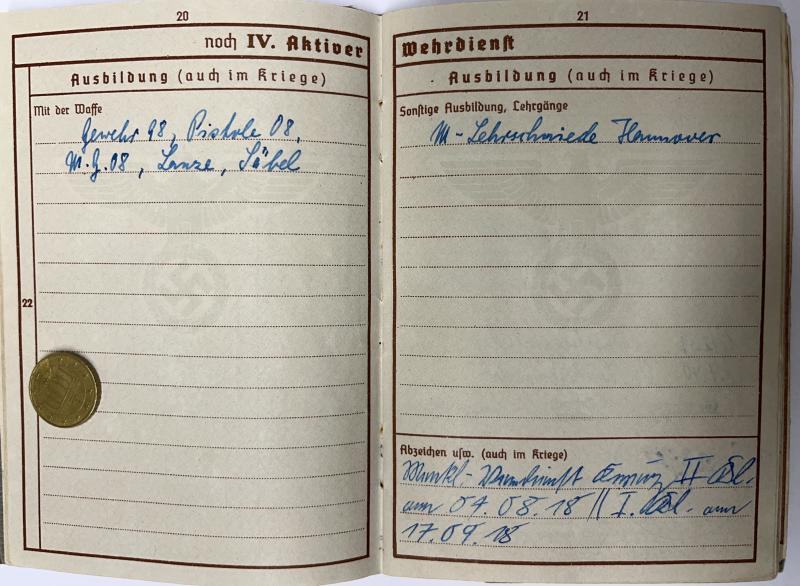 20
noch IV. Aktiver
Ausbildung (auch im Kriege)
Mit der Waffe
Gewehr 98, Pistole 08,
M.G. 08, Lanze, Säbel
22
21
Wehrdienst
Ausbildung (auch im Kriege)
Sonstige Ausbildung, Lehrgänge
M-Lehrschmiede Hannover
Abzeichen usw. (auch im Kriege)
II Kl.
am 04.08.18 // I. Kl. am
17.09.18